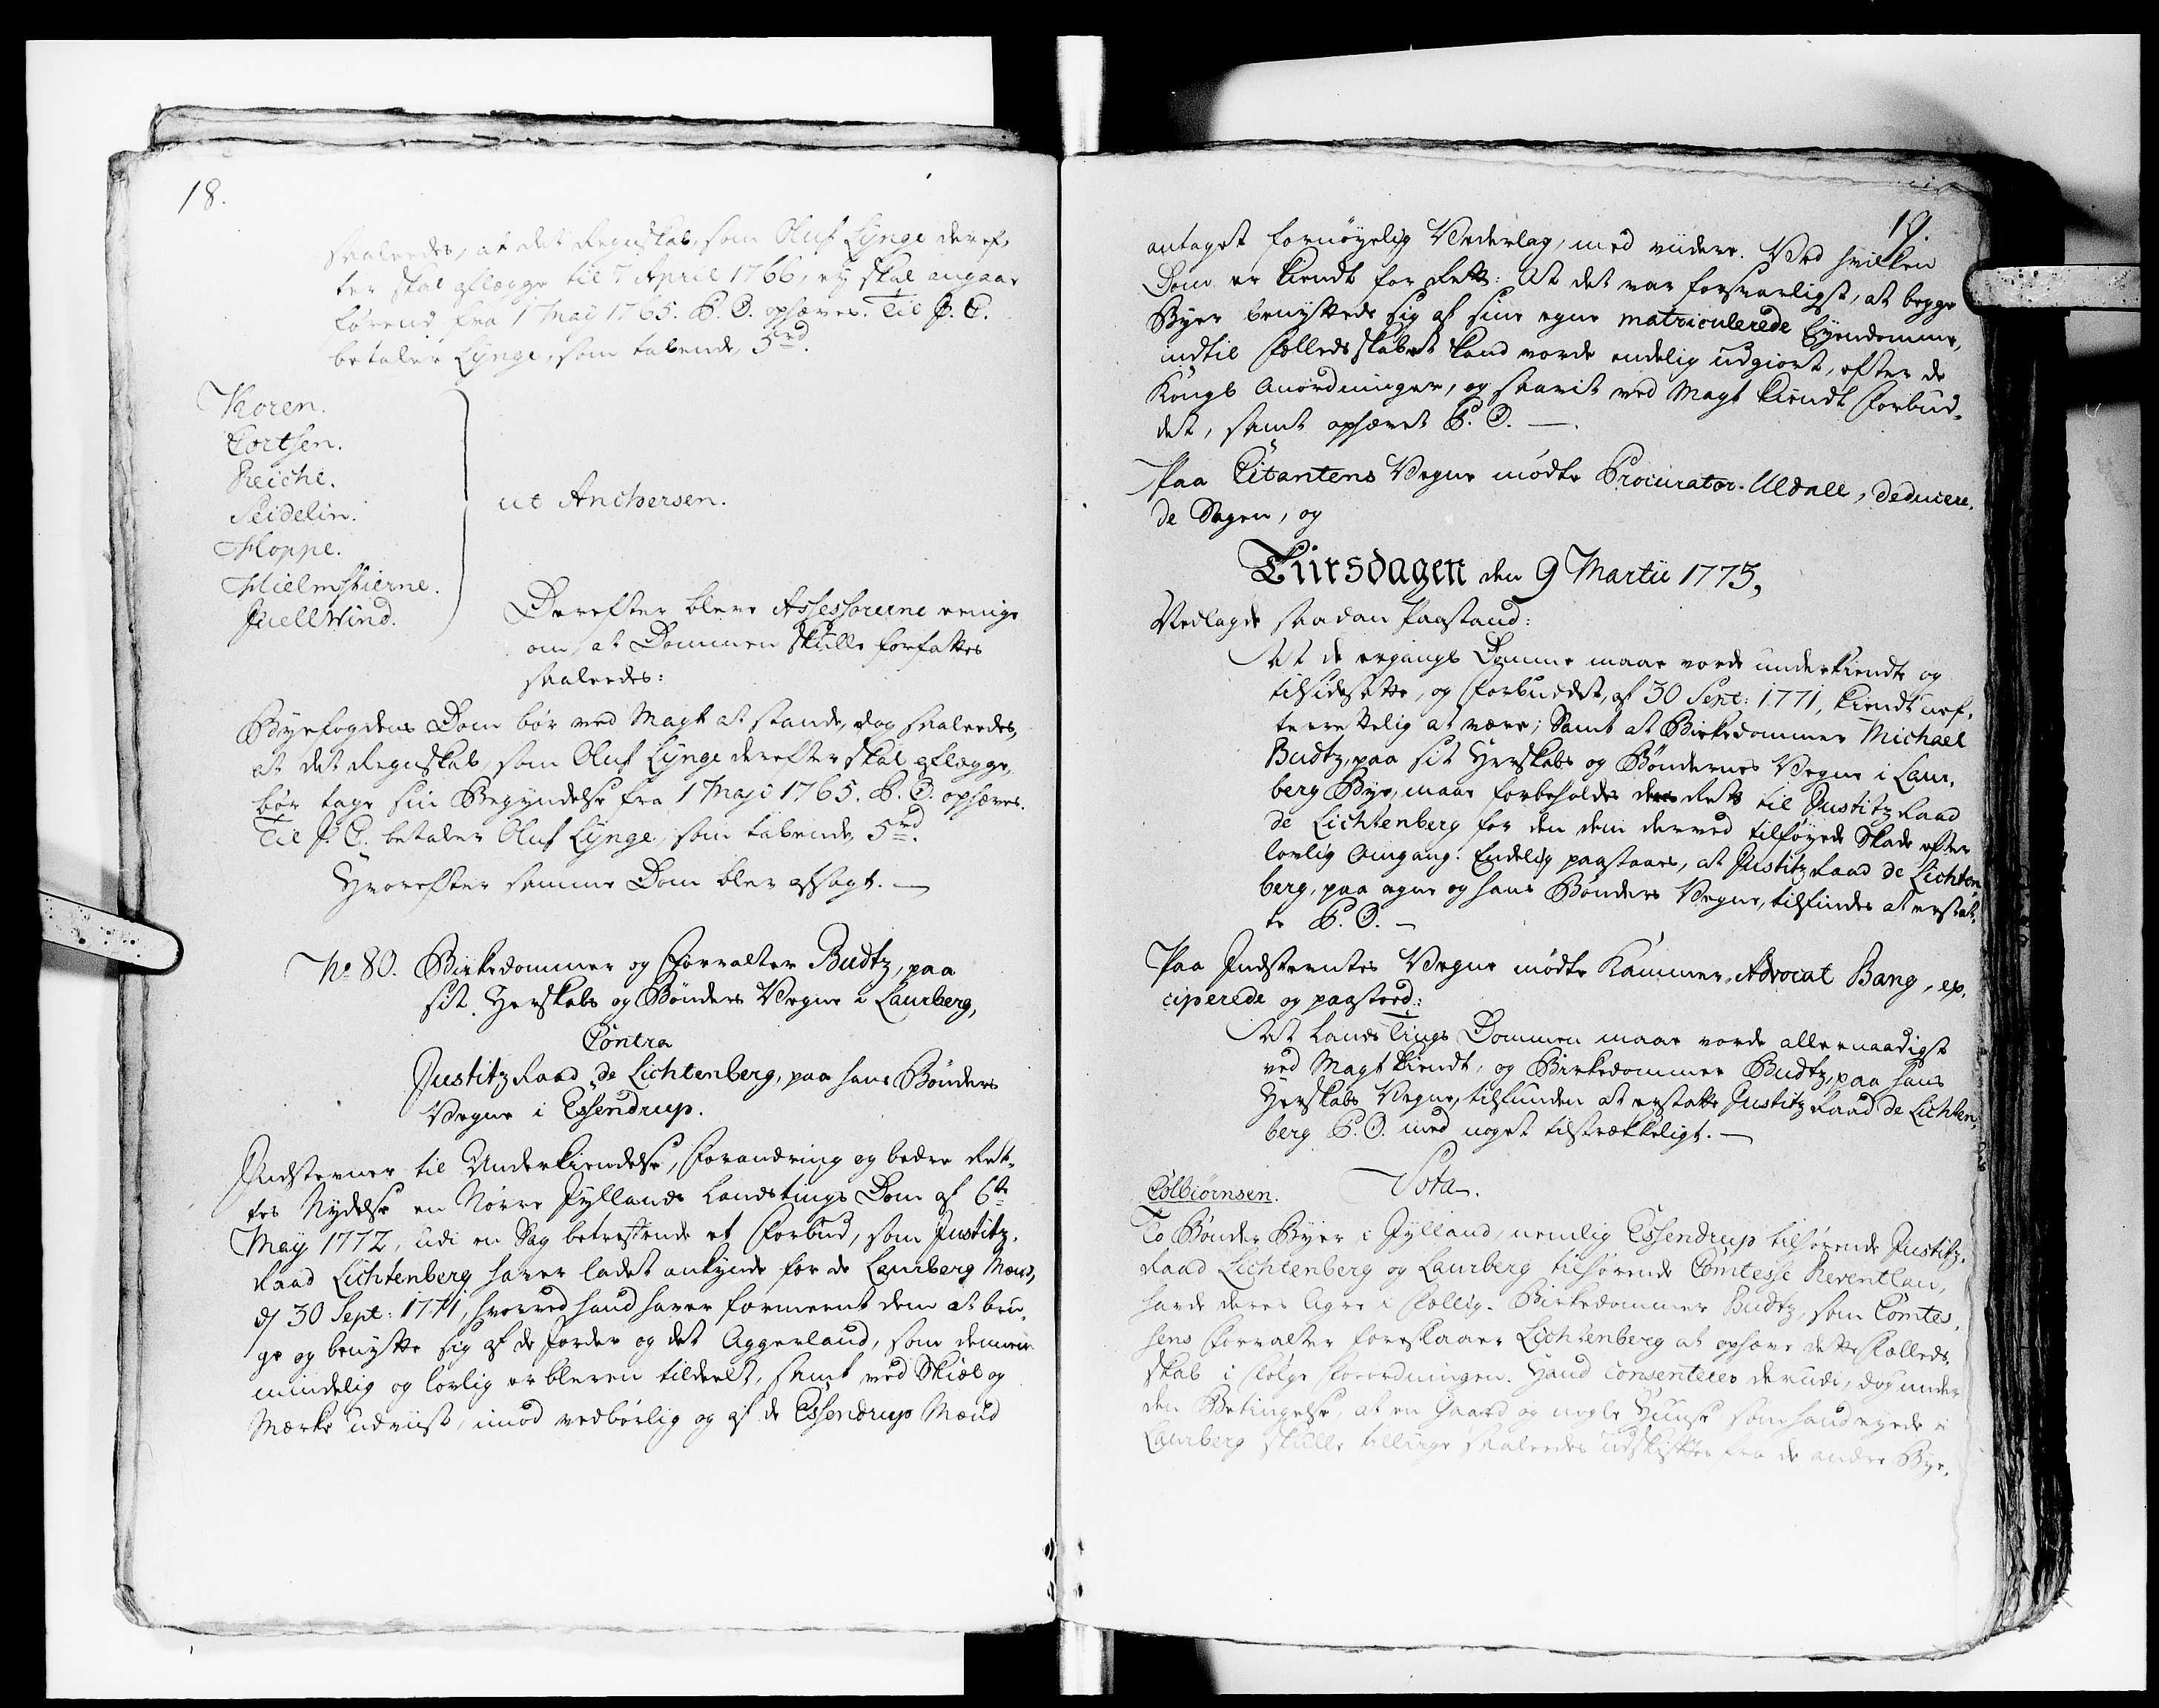 18.
saaleedes, at det Regnskab, som Oluf Lynge deref-
ter skal aflægge til 7 April 1766, ey skal angaae
førend fra 1 Maii 1765. P. O. ophæves. Til J. C.
betaler Lynge, som tabende, 5 rd.
Koren.
Cortsen.
Reiche.
Seidelin.
Hoppe.
Hielmstierne.
Juell Wind.
ut Anchersen.
Derefter bleve Assessorerne eenige
om, at Dommen skulle forfattes
saaleedes:
Byefogdens Dom bør ved Magt at stande, dog saaleedes,
at det Regnskab, som Oluf Lynge derefter skal aflægge,
bør tage sin Begyndelse fra 1 Maji 1765. P. O. ophæves.
Til J. C. betaler Oluf Lynge, som tabende, 5 rd.
Hvorefter samme Dom blev afsagt. —
No 80. Birkedommer og Forvalter Budtz, paa
sit Herskabs og Bønders Vegne i Laurberg,
Contra
Justitz Raad de Lichtenberg, paa hans Bønders
Vegne i Essendrup.
Indstevner til Underkiendelse, Forandring og bedre Ret-
tes Nydelse en Nørre Jyllands Landstings Dom af 6te
May 1772, udi en Sag betreffende et Forbud, som Justitz-
Raad Lichtenberg haver ladet ankynde for de Laurberg Mænd,
af 30 Sept: 1771, hvorved hand haver formeent dem at bru-
ge og benytte sig af de Jorder og det Aggerland, som dennem
mindelig og lovlig er bleven tildeelt, samt ved Skiæl og
Mærke udviist, imod vedbørlig og af de Essendrup Mænd
19.
antaget fornøyelig Vederlag, med viidere. Ved hvilken
Dom er kiendt for Rett: At det var forsvarligst, at begge
Byer benyttede sig af sine egne matriculerede Eyendomme,
indtil Fælledsskabet kand vorde endelig udgiort, efter de
Kongl Anordninger, og saavit ved Magt kiendt Forbud-
det, samt ophævet P. O. —.
Paa Citantens Vegne mødte Procurator Uldall, deducere-
de Sagen, og
Tiirsdagen den 9 Martii 1775,
Vedlagde saadan Paastand:
At de ergangne Domme maae vorde underkiendte og
tilsidesatte, og Forbuddet, af 30 Sept: 1771, kiendt uef-
terrettelig at være; Samt at Birkedommer Michael
Budtz, paa sit Herskabs og Bøndernes Vegne i Laur-
berg Bye, maae forbeholdes deres Rett til Justitz Raad
de Lichtenberg for den dem derved tilføyede Skade efter
lovlig Omgang. Endelig paastaaes, at Justitz Raad de Lichten-
berg, paa egne og hans Bønders Vegne, tilfindes at erstat-
te P. O. —
Paa Indstevntes Vegne mødte Kammer-Advocat Bang, ex-
ciperede og paastod:
At Lands Tings Dommen maae vorde allernaadigst
ved Magt kiendt, og Birkedommer Budtz, paa hans
Herskabs Vegne, tilfunden at erstatte Justitz Raad de Lichten-
berg P. O. med noget tilstrækkeligt. —
Vota.
Colbiørnsen.
To Bønder Byer i Jylland, nemlig Essendrup tilhørende Justitz-
Raad Lichtenberg og Laurberg tilhørende Comtesse Reventlau,
havde deres Agre i Fællig. Birkedommer Budtz, som Comtes-
sens Forvalter foreslaaer Lichtenberg at ophæve dette Fælleds-
skab i Følge Forordningen. Hand consenterer derudi, dog under
den Betingelse, at en Gaard og nogle Huuse som hand eyede i
Laurberg skulle tillige saaleedes udskiftes fra de andre Bye-